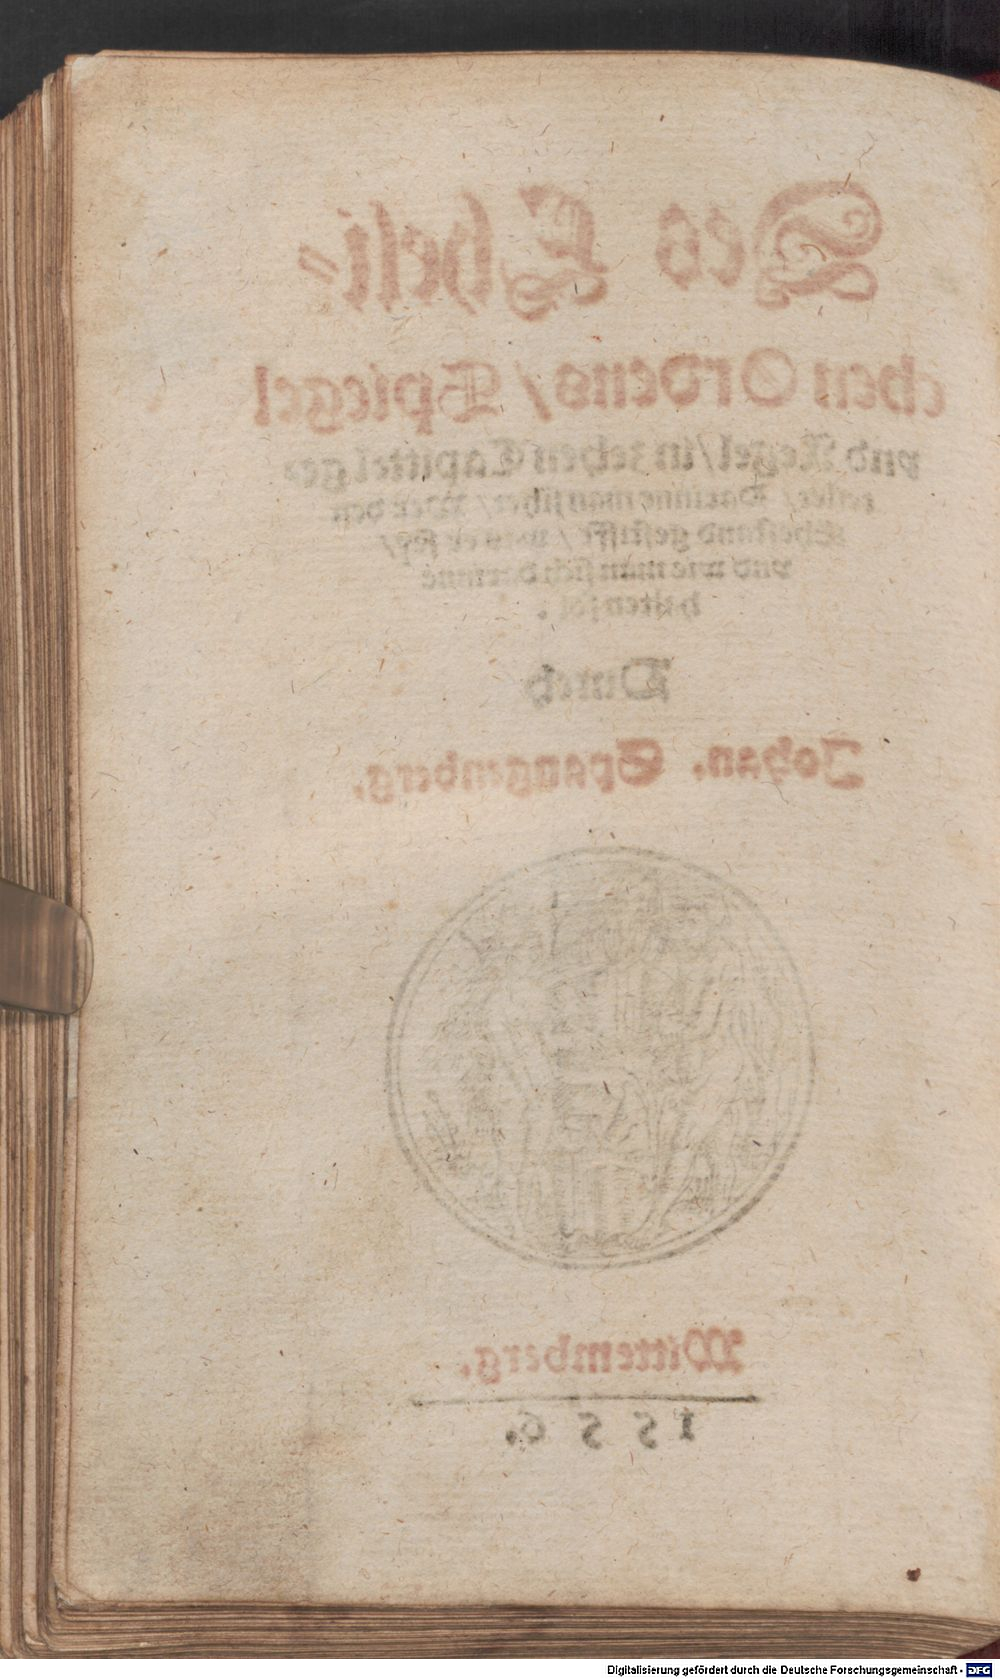 Des Eheli-
chen Ordens / Spiegel
vnd Regel / in zehen Capittel ge-
teilet / Darinne man sihet / Wer den
Ehestand gestifft / was er sey /
vnd wie man sich darinne
halten sol .
Durch
Johan. Spangenberg.
Wittemberg.
1556.
Digitalisierung gefördert durch die Deutsche Forschungsgemeinschaft - DFG